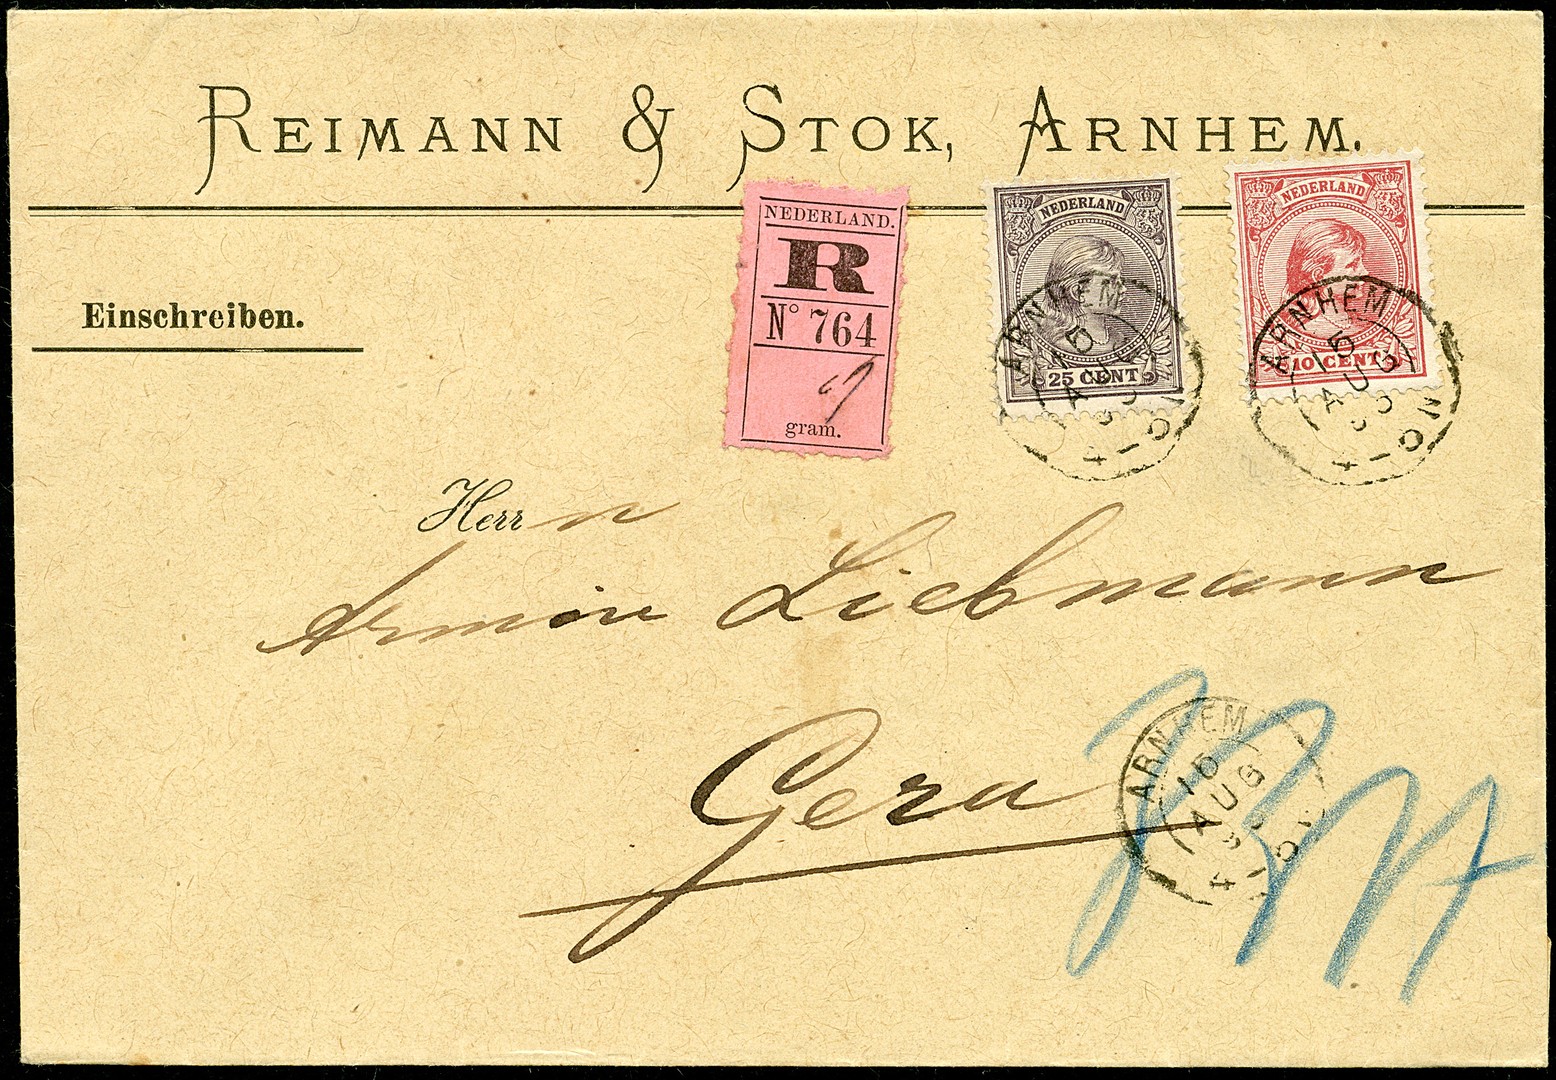 REIMANN & STOK, ARNHEM.
Einschreiben.
NEDERLAND.
R
N° 764
gram.
NEDERLAND
25 CENT
NEDERLAND
10 CENT
ARNHEM
15
AUG
ARNHEM
15
AUG
Herrn
Armin Liebmann
Gera
ARNHEM
15
AUG